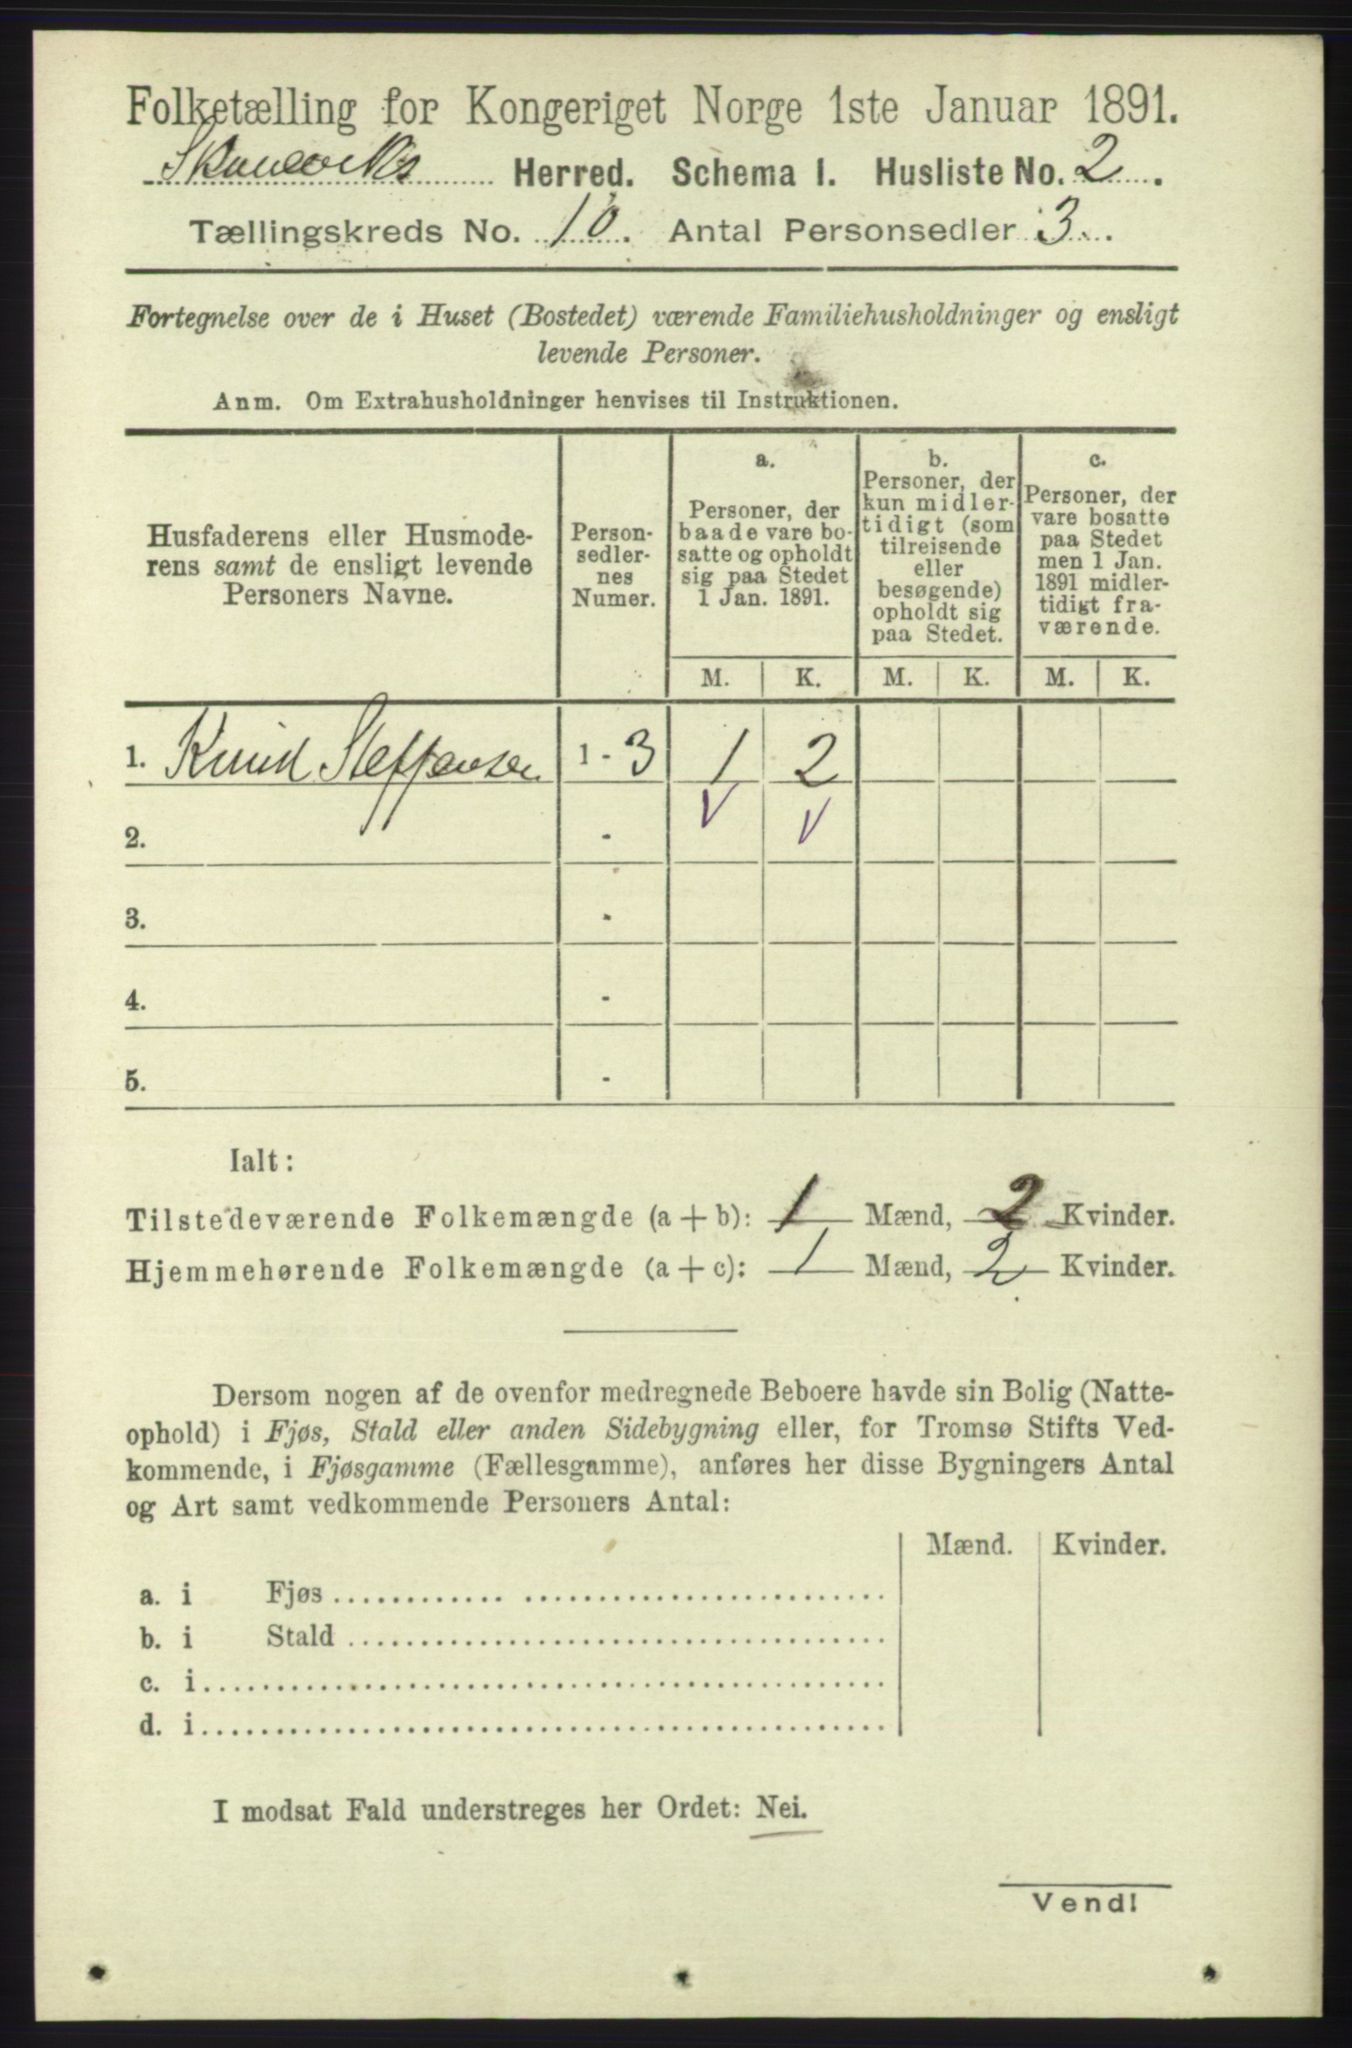 Folketælling for Kongeriget Norge 1ste Januar 1891.
Skaneviks Herred. Schema I. Husliste No. 2.
Tællingskreds No. 10. Antal Personsedler 3.
Fortegnelse over de i Huset (Bostedet) værende Familiehusholdninger og ensligt
levende Personer.
Anm. Om Extrahusholdninger henvises til Instruktionen.
Husfaderens eller Husmode-
rens samt de ensligt levende
Personers Navne.
Person-
sedler-
nes
Numer.
a.
Personer, der
baade vare bo-
satte og opholdt
sig paa Stedet
1 Jan. 1891.
b.
Personer, der
kun midler-
tidigt (som
tilreisende
eller
besøgende)
opholdt sig
paa Stedet.
c.
Personer, der
vare bosatte
paa Stedet
men 1 Jan.
1891 midler-
tidigt fra-
værende.
M. K. M. K. M. K.
1. Knud Steffensen 1 - 3 1 2
2. -
3. -
4. -
5. -
Ialt:
Tilstedeværende Folkemængde (a + b): 1 Mænd, 2 Kvinder.
Hjemmehørende Folkemængde (a + c): 1 Mænd, 2 Kvinder.
Dersom nogen af de ovenfor medregnede Beboere havde sin Bolig (Natte-
ophold) i Fjøs, Stald eller anden Sidebygning eller, for Tromsø Stifts Ved-
kommende, i Fjøsgamme (Fællesgamme), anføres her disse Bygningers Antal
og Art samt vedkommende Personers Antal:
Mænd. Kvinder.
a. i Fjøs
b. i Stald
c. i
d. i
I modsat Fald understreges her Ordet: Nei.
Vend!